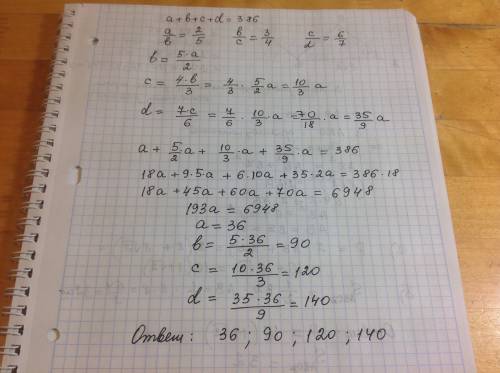 a+b+c+d=386
a/b = 2/5   b/c = 3/4   c/d = 6/7
b = 5·a/2
c = 4·b/3 = 4/3 · 5/2 a = 10/3 a
d = 7·c/6 = 7/6 · 10/3 · a = 70/18 · a = 35/9 a
a + 5/2 · a + 10/3 · a + 35/9 · a = 386
18a + 9·5a + 6·10a + 35·2a = 386·18
18a + 45a + 60a + 70a = 6948
193a = 6948
a = 36
b = 5·36/2 = 90
c = 10·36/3 = 120
d = 35·36/9 = 140
Ответ: 36 ; 90 ; 120 ; 140